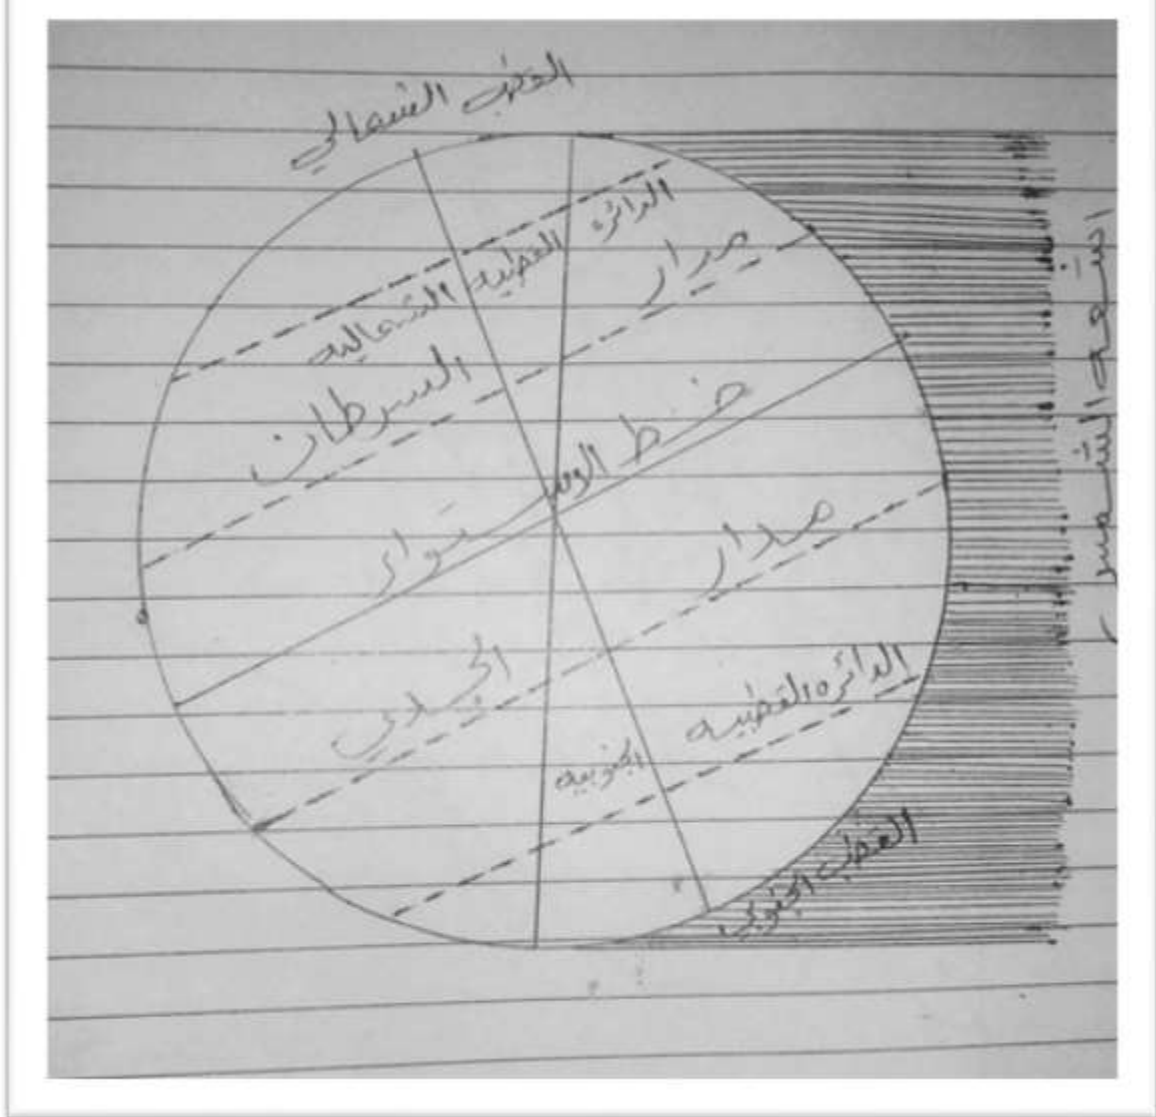 القطب الشمالي
الدائره القطبيه الشماليه
مدار السرطان
خط الاستواء
مدار الجدي
الدائره القطبيه الجنوبيه
القطب الجنوبي
اشعه الشمس